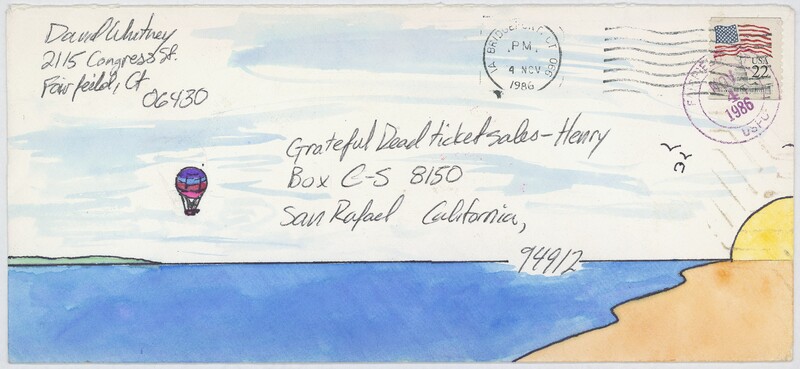 David Whitney
2115 Congress St.
Fairfield, Ct
06430
BRIDGEPORT, CT 066
PM
4 NOV
1986
USA
22
NOV
4
1986
USPO
Grateful Dead ticket sales-Henry
Box C-S 8150
San Rafael California,
94912